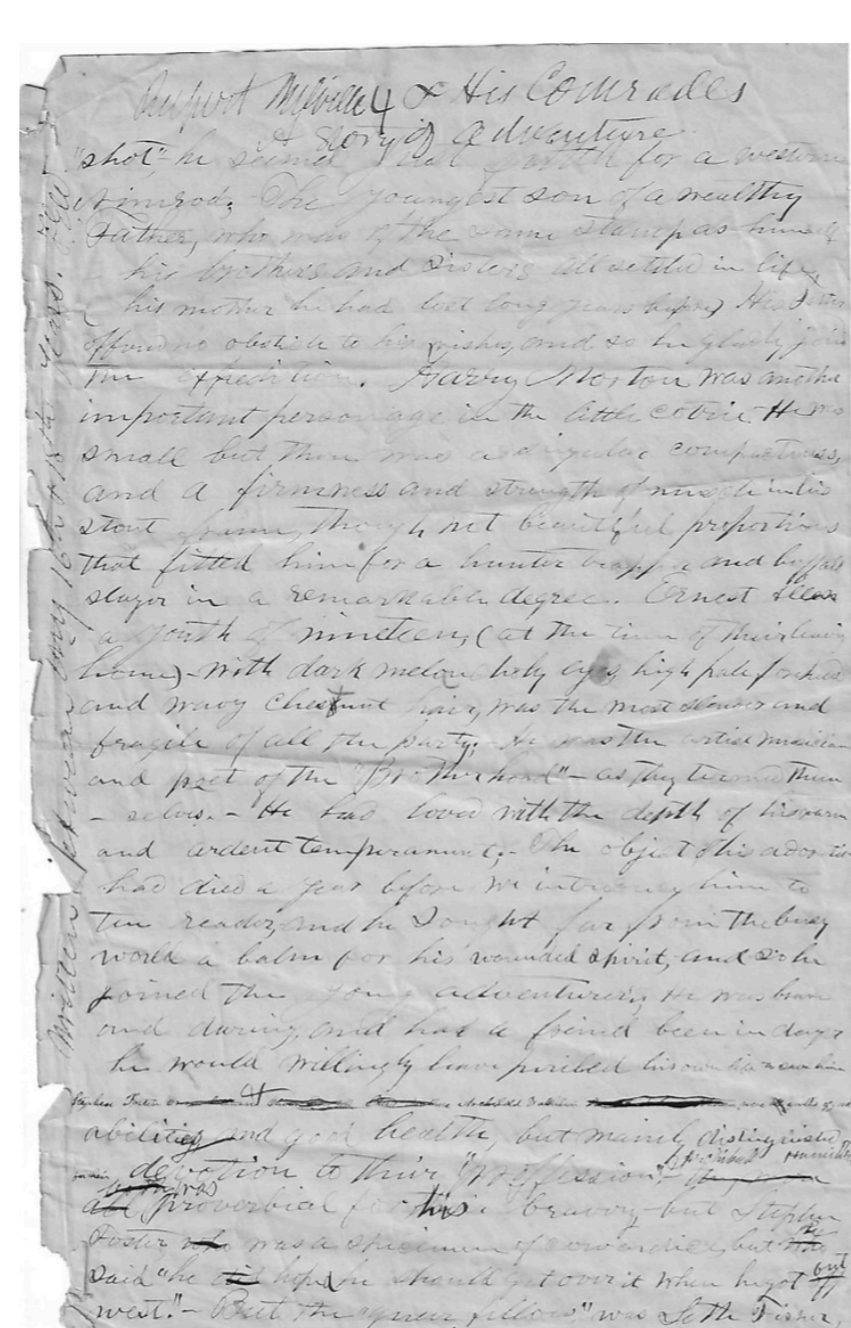 & His Comrades
A Story of Adventure
"shot", he seemed for a western
Nimrod. The youngest son of a wealthy
Father, who was of the same stamp as himself
his brothers and sisters all settled in life,
his mother he had lost long years before) His Father
no obstacle to his wishes, and so he gladly
the expedition. Harry Morton was another
important personage in the little coterie. He was
small but there was a singular compactness,
and a firmness and strength of muscle in his
stout frame, though not beautiful proportions
that fitted him for a hunter trapper and buffalo
slayer in a remarkable degree. Ernest
a youth of nineteen, (at the time of their leaving
home) - with dark melancholy eyes, high pale forehead
and wavy chestnut hair, was the most slender and
fragile of all the party. He was the artist musician
and poet of the "Brotherhood" - as they termed them
- selves. - He had loved with the depth of his warm
and ardent temperament; - The object of his adoration
had died a year before we introduce him to
the reader, and he sought far from the busy
world a balm for his wounded spirit, and so he
joined the young adventurers, He was brave
and daring, and had a friend been in danger
he would willingly have periled his own life to save him
Stephen Foster
abilities and good health, but mainly distinguished
devotion to their "proffession",
was
proverbial for his bravery, but Stephen
Foster was a specimen of cowardice, but he
said "he hoped he should get over it when he got out
west." - But the "queer fellow" was Seth
Written between my 16th & 18th years.